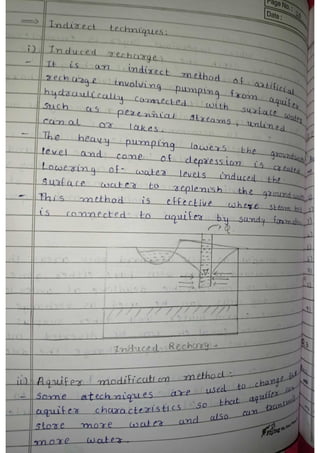 Page No.:
Date:
⇒ Indirect techniques:
i) Induced recharge:
- It is an indirect method of artificial
recharge involving pumping from aquifer
hydraulically connected with surface water
such as perennial streams, unlined
canal or lakes.
- The heavy pumping lowers the groundwater
level and cone of depression is created
Lowering of water levels induced the
surface water to replenish the ground
- This method is effective where steam
is connected to aquifer by sandy
Q
Induced Recharge.
ii) Aquifer modification method:
- Some atechniques are used to change the
aquifer characteristics so that aquifer can
store more water and also can
more water.